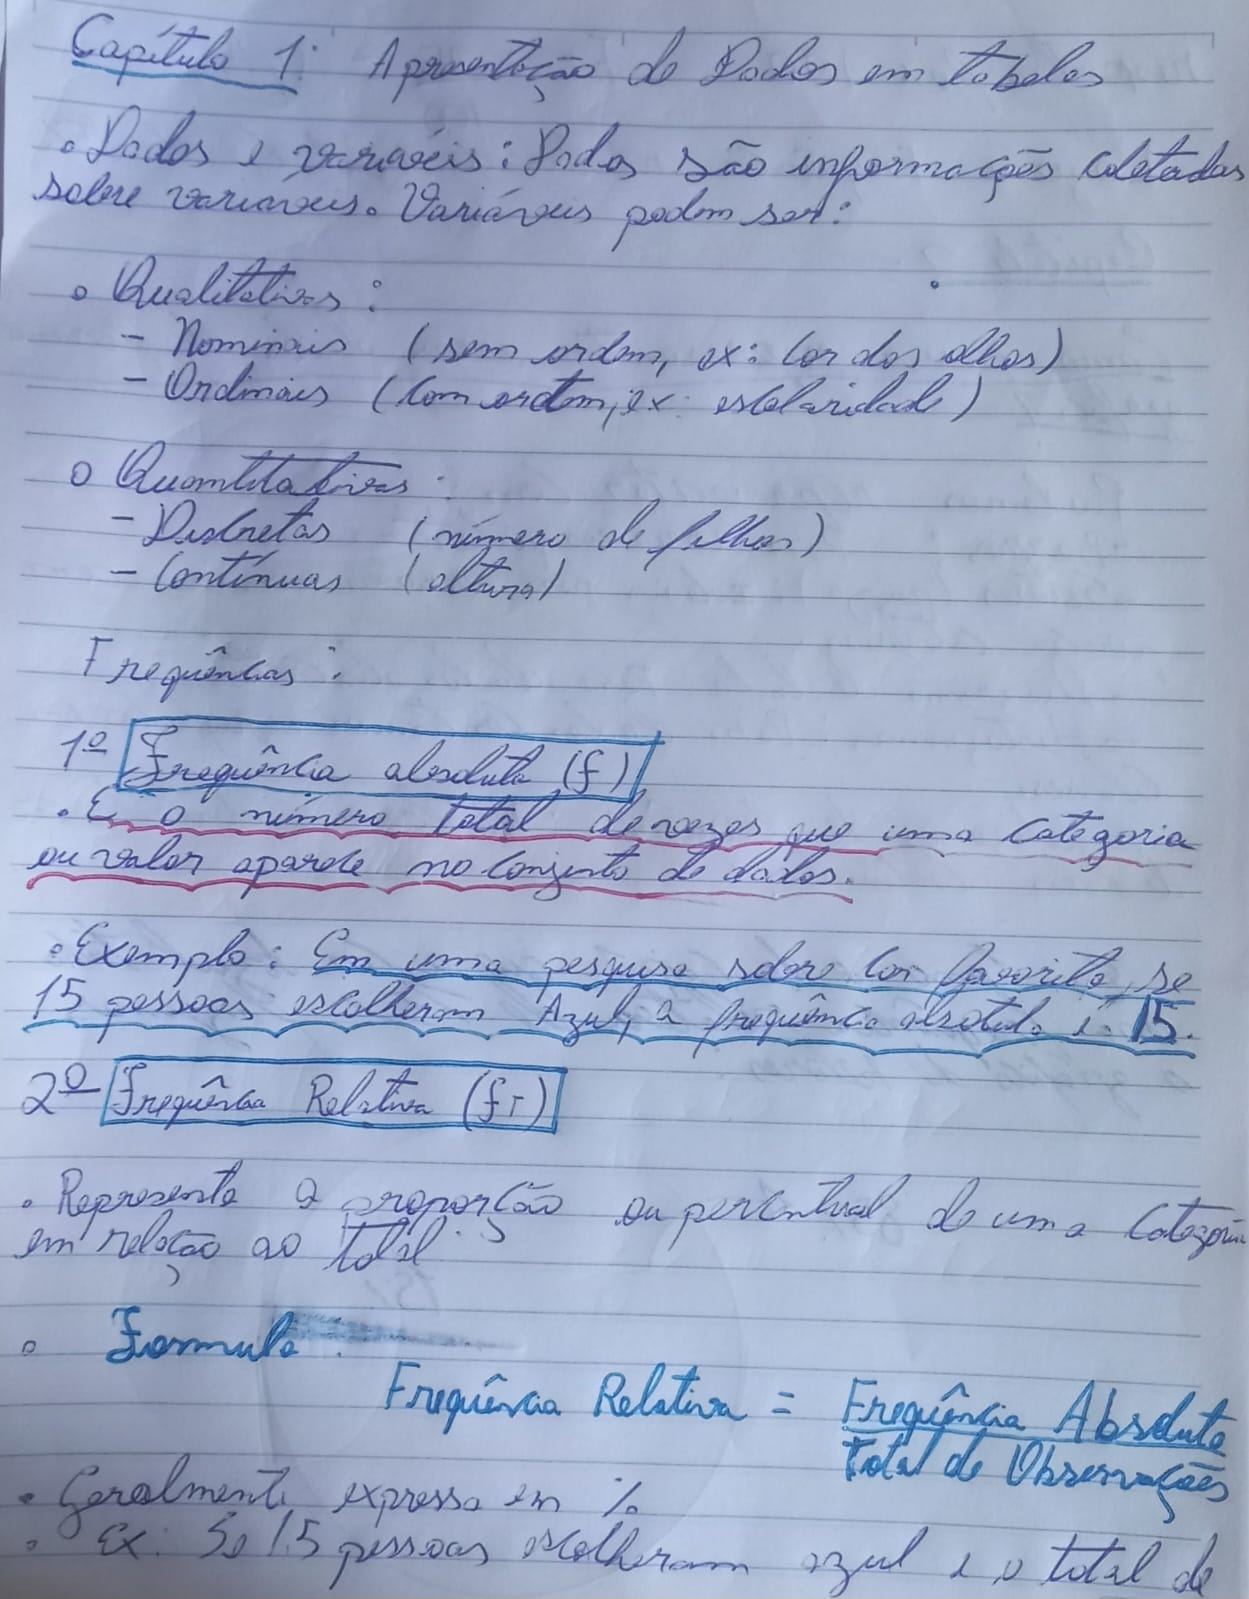 Capítulo 1: Apresentação de Dados em tabelas
• Dados e variavéis: Dados são informações coletadas
sobre variavéis. Variáveis podem ser:
• Qualitativas:
- Nominais (sem ordem, ex: Cor dos olhos)
- Ordinais (Com ordem, ex: escolaridade)
• Quantitativas:
- Discretas (número de filhos)
- Contínuas (altura)
Frequências:
1º Frequência absoluta (f)
• É o número total de vezes que uma categoria
ou valor aparece no conjunto de dados.
• Exemplo: Em uma pesquisa sobre Cor favorita, se
15 pessoas escolheram Azul, a frequência absoluta é 15.
2º Frequência Relativa (fr)
• Representa a proporção ou percentual de uma categoria
em relação ao total.
• Formula:
Frequência Relativa = Frequência Absoluta
Total de Observações
• Geralmente expressa em %
• Ex: Se 15 pessoas escolheram azul e o total de